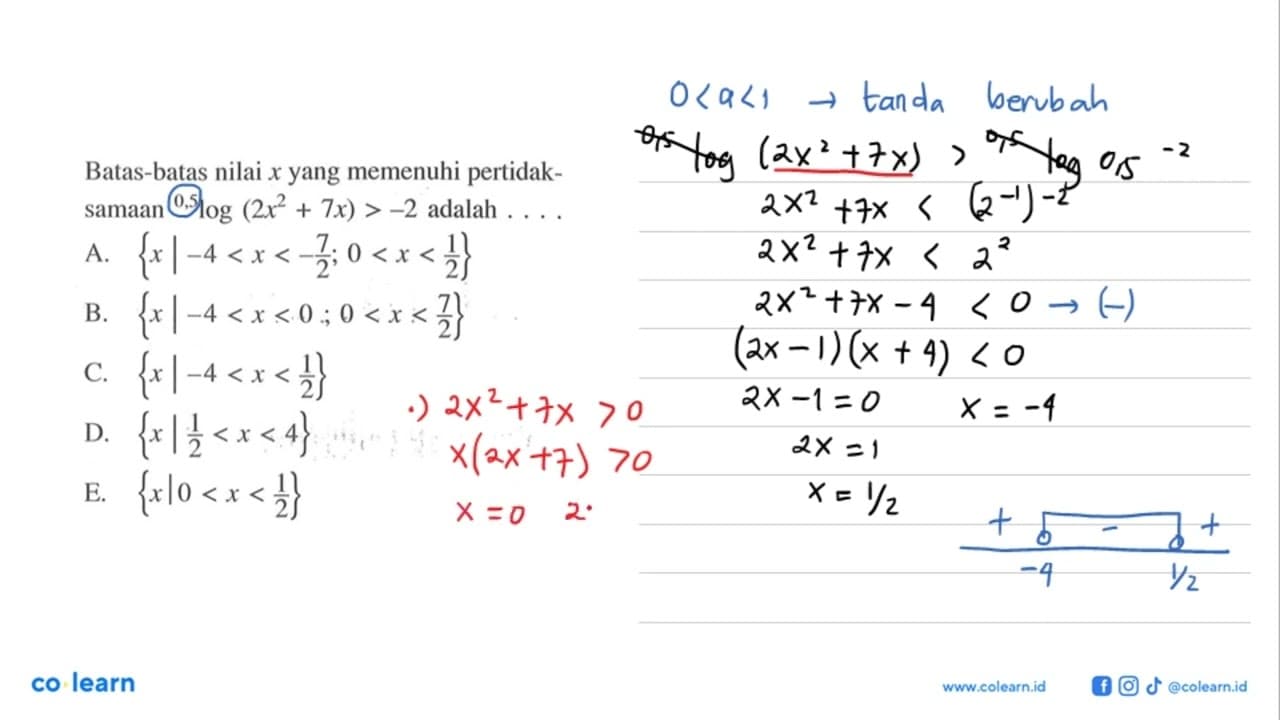 Batas-batas nilai x yang memenuhi pertidak-
samaan ⁰'⁵log (2x² + 7x) > –2 adalah . . . .
A. {x | –4 < x < –7/2; 0 < x < 1/2}
B. {x | –4 < x < 0 ; 0 < x < 7/2}
C. {x | –4 < x < 1/2}
D. {x | 1/2 < x < 4}
E. {x|0 < x < 1/2}
·) 2x² + 7x > 0
x(2x + 7) > 0
x = 0 2
0 < a < 1 → tanda berubah
0,5 log (2x² + 7x) > 0,5 log 0,5 ⁻²
2x² + 7x < (2⁻¹)⁻²
2x² + 7x < 2²
2x² + 7x – 4 < 0 → (–)
(2x – 1)(x + 4) < 0
2x – 1 = 0 x = –4
2x = 1
x = 1/2
+ – +
–4 1/2
co learn
www.colearn.id @colearn.id